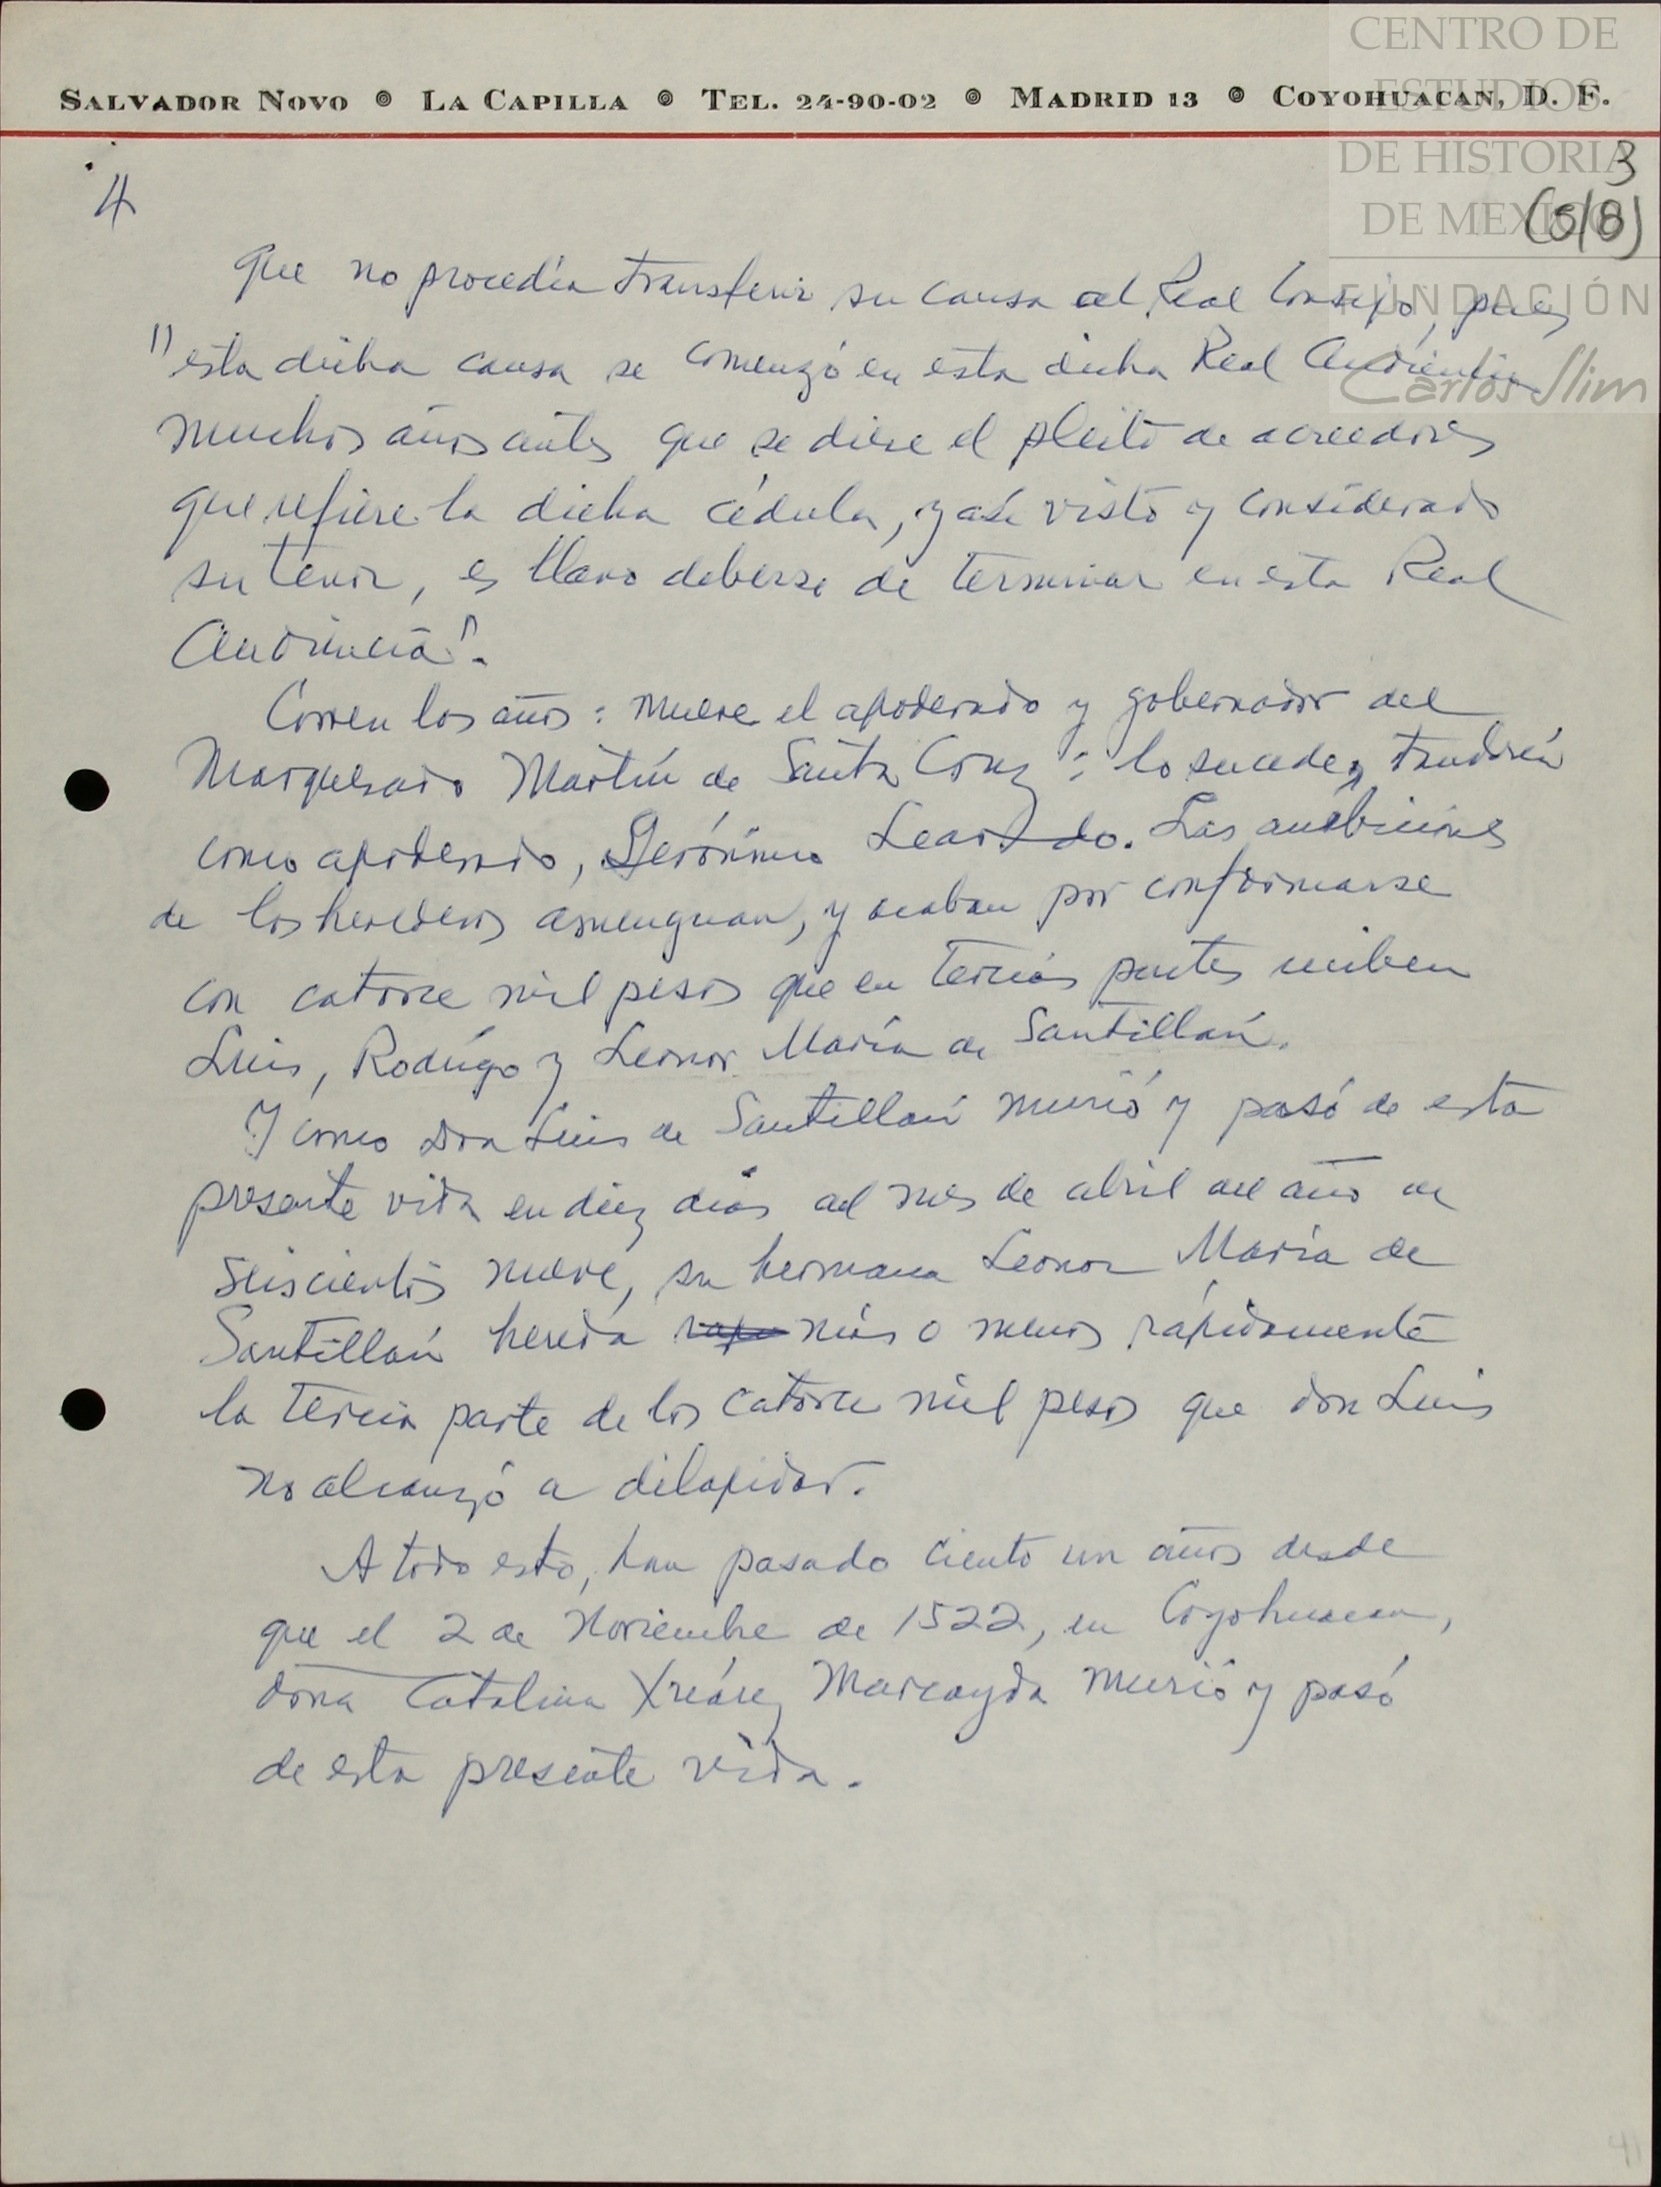 SALVADOR NOVO ⊚ LA CAPILLA ⊚ TEL. 24-90-02 ⊚ MADRID 13 ⊚ COYOHUACAN, D. F.
CENTRO DE
ESTUDIOS
DE HISTORIA
DE MEXICO
FUNDACIÓN
Carlos Slim
3
4
que no procedía transferir su causa al Real Consejo, pues
"esta dicha causa se comenzó en esta dicha Real Audiencia
muchos años antes que se diese el pleito de acreedores
que refiere la dicha cédula, y así visto y considerado
su tenor, es llano deberse de terminar en esta Real
Audiencia".
Corren los años: muere el apoderado y gobernador del
Marquesado Martín de Santa Cruz: lo sucede, también
como apoderado, Gerónimo Leardo. Las ambiciones
de los herederos amenguan, y acaban por conformarse
con catorce mil pesos que en tercias partes reciben
Luis, Rodrigo y Leonor María de Santillán.
Y como Don Luis de Santillán murió y pasó de esta
presente vida en diez días del mes de abril del año de
seiscientos nueve, su hermana Leonor María de
Santillán hereda más o menos rápidamente
la tercia parte de los catorce mil pesos que don Luis
no alcanzó a dilapidar.
A todo esto, han pasado ciento un años desde
que el 2 de Noviembre de 1522, en Coyohuacan,
doña Catalina Xuárez Marcayda murió y pasó
de esta presente vida.
41